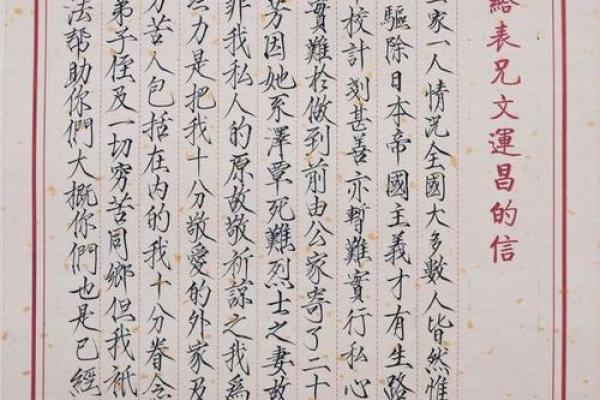 給表兄文運昌的信
家一人情況全國大多數人皆然惟
驅除日本帝國主義才有生路
校計劃甚善亦暫難實行私心
實難於做到前由公家寄了二十
芳因她系澤覃死難烈士之妻故
非我私人的原故敬祈諒之我為
力是把我十分敬愛的外家及
苦人包括在內的我十分眷念
弟子侄及一切窮苦同鄉但我祇
法幫助你們大概你們也是已經